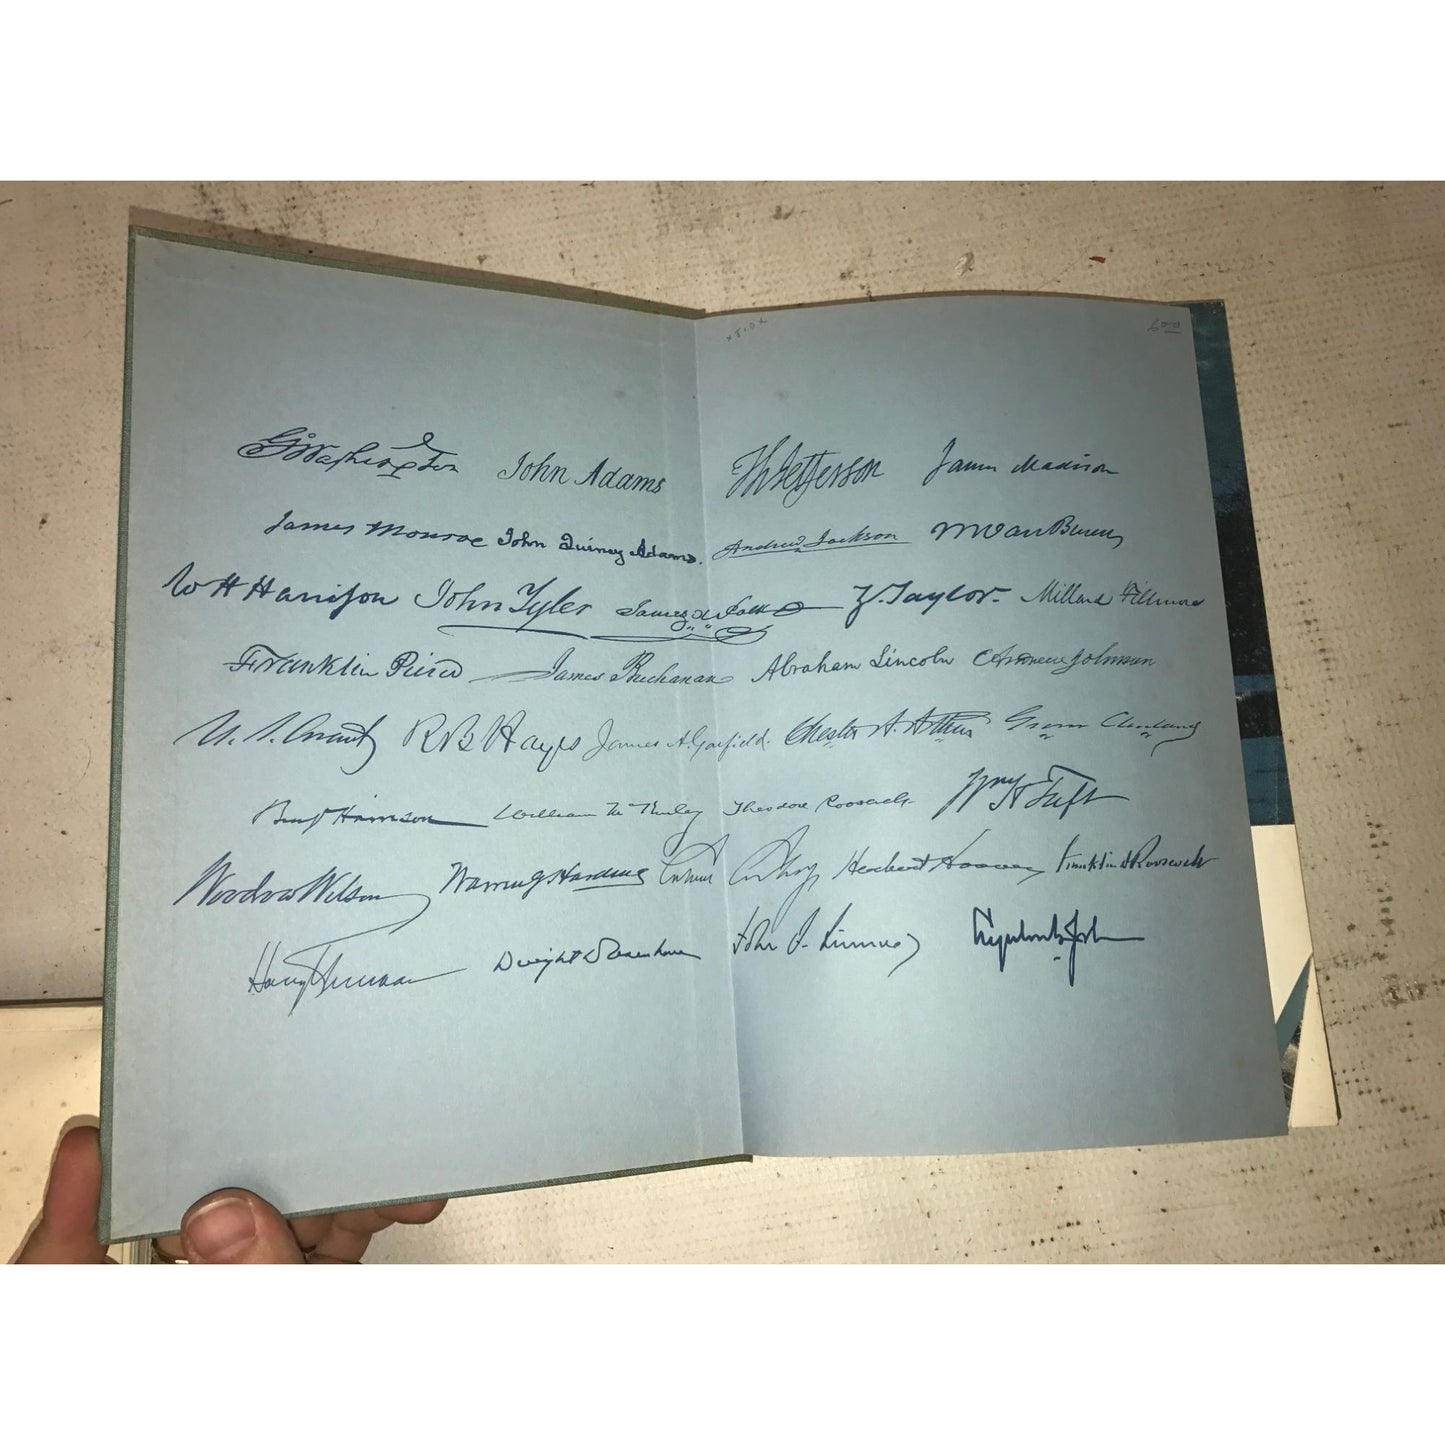 x8.0x 6.00
G Washington John Adams Th Jefferson James Madison
James Monroe John Quincy Adams. Andrew Jackson M Van Buren
W H Harrison John Tyler James K Polk Z. Taylor. Millard Fillmore
Franklin Pierce James Buchanan Abraham Lincoln Andrew Johnson
U. S. Grant R B Hayes James A. Garfield. Chester A. Arthur Grover Cleveland
Benj Harrison William McKinley Theodore Roosevelt Wm H Taft
Woodrow Wilson Warren G Harding Calvin Coolidge Herbert Hoover Franklin D Roosevelt
Harry Truman Dwight D Eisenhower John F. Kennedy Lyndon B. Johnson